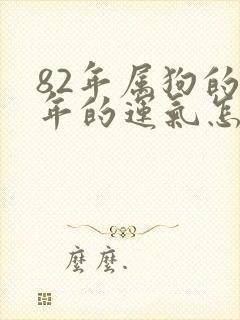 82年属狗的
年的运氣怎
麽麽.